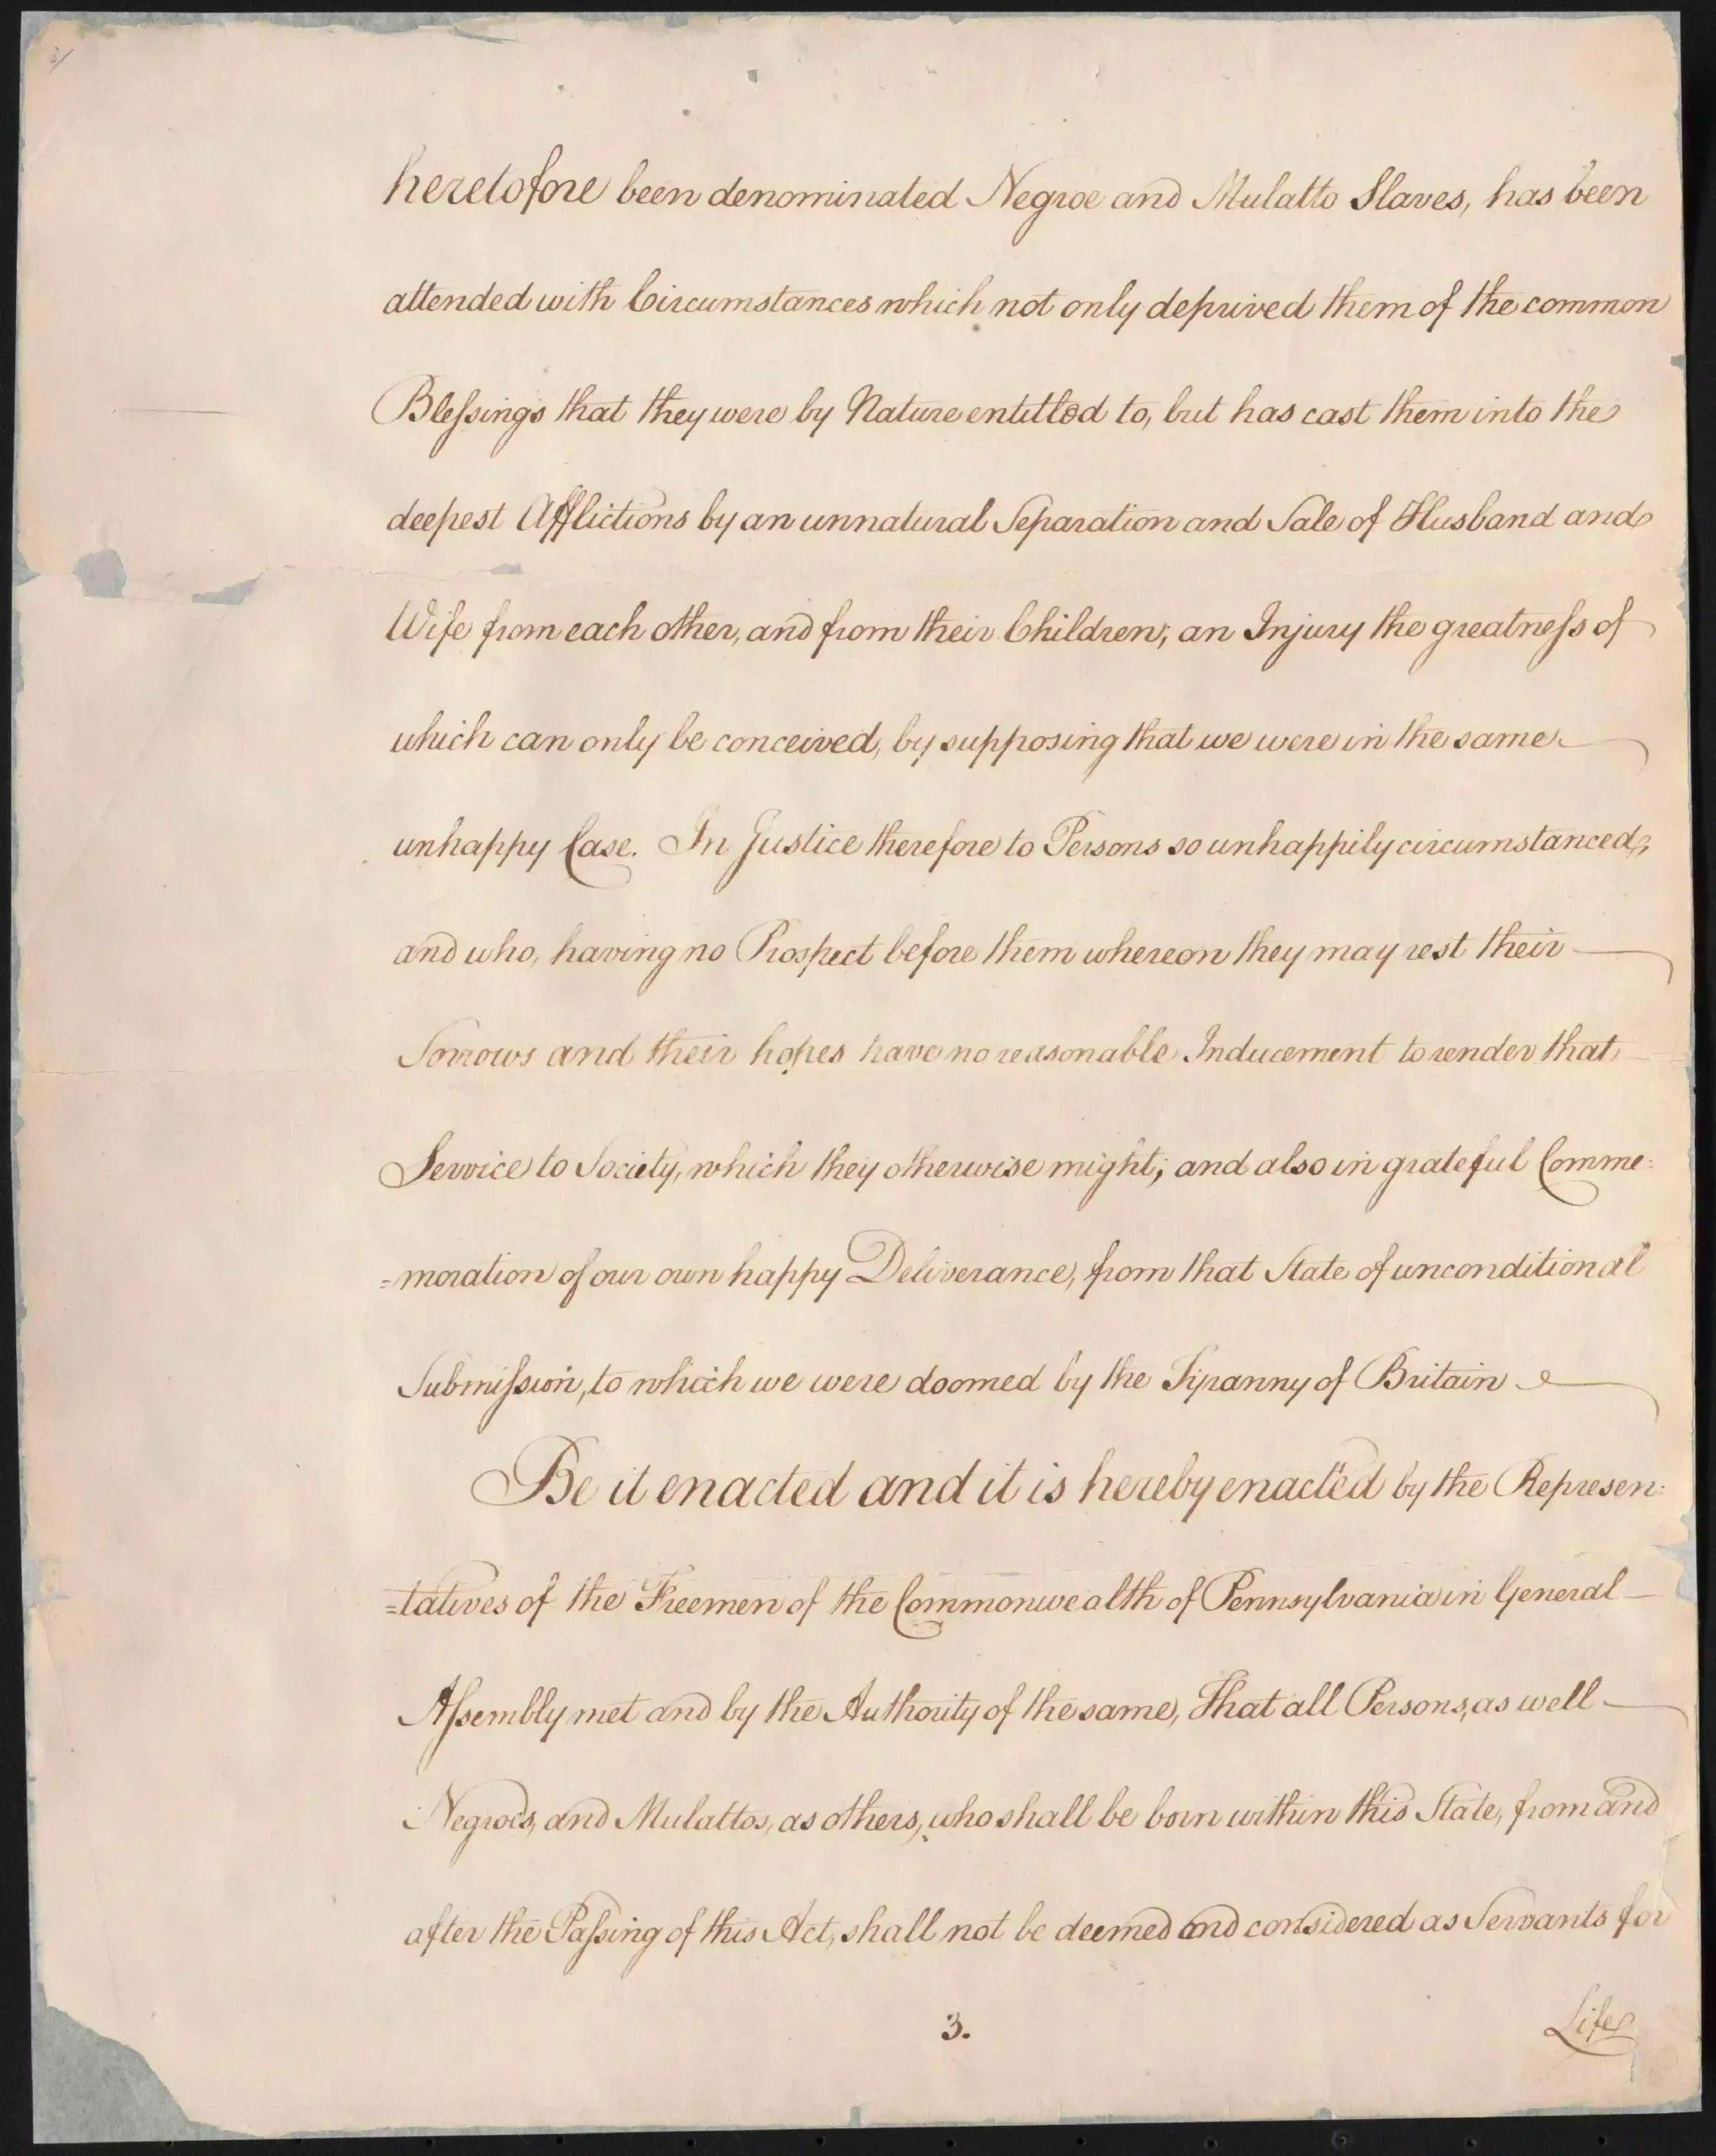 3/
heretofore been denominated Negroe and Mulatto Slaves, has been
attended with Circumstances which not only deprived them of the common
Bleſsings that they were by Nature entitled to, but has cast them into the
deepest Afflictions by an unnatural Separation and Sale of Husband and
Wife from each other, and from their Children; an Injury the greatneſs of
which can only be conceived, by supposing that we were in the same
unhappy Case. In Justice therefore to Persons so unhappily circumstanced,
and who, having no Prospect before them whereon they may rest their
Sorrows and their hopes have no reasonable Inducement to render that
Service to Society, which they otherwise might; and also in grateful Comme=
=moration of our own happy Deliverance, from that State of unconditional
Submiſsion, to which we were doomed by the Tyranny of Britain
Be it enacted and it is hereby enacted by the Represen=
=tatives of the Freemen of the Commonwealth of Pennsylvania in General
Aſsembly met and by the Authority of the same, That all Persons, as well
Negroes, and Mulattos, as others, who shall be born within this State, from and
after the Paſsing of this Act, shall not be deemed and considered as Servants for
3.
Life